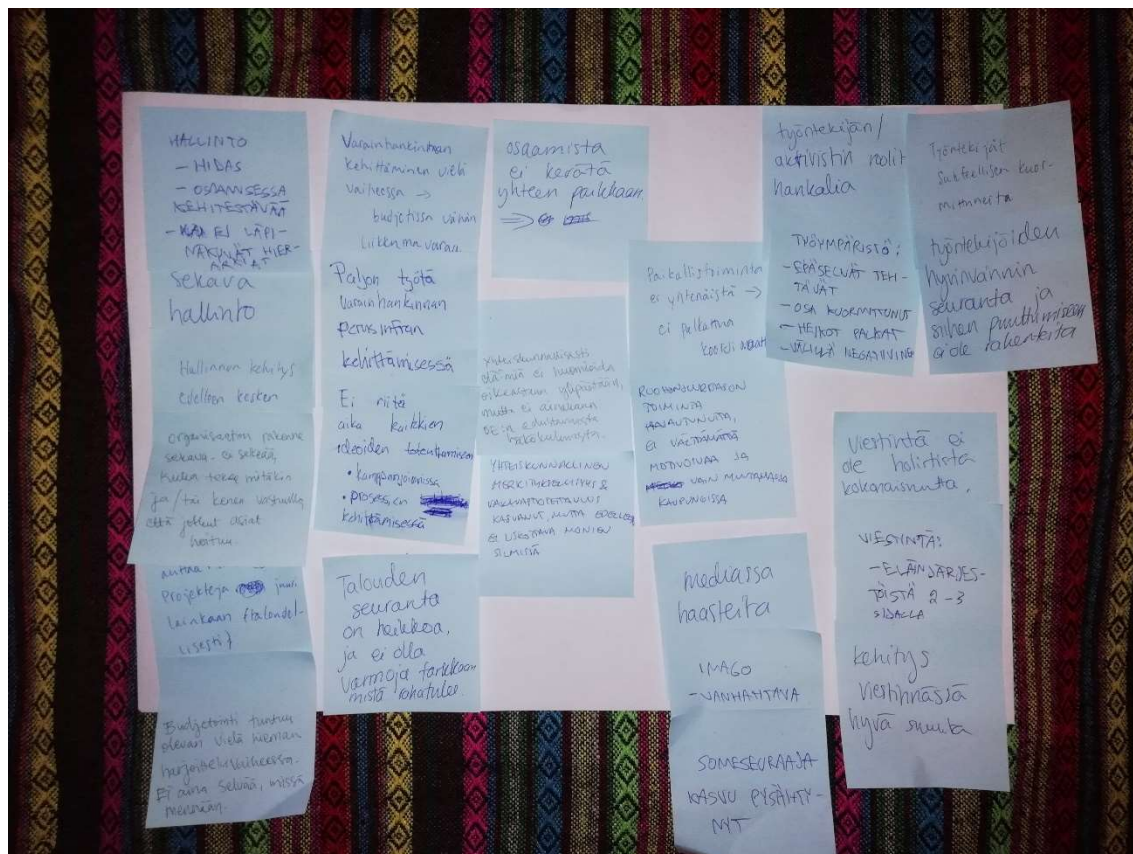 HALLINTO
- HIDAS
- OSAAMISESSA
KEHITESTÄVÄÄ
- EI LÄPI-
NÄKYVÄT HIER-
ARKIAT
Sekava
hallinto
Hallinnon kehitys
edelleen kesken
organisaation rakenne
sekava. Ei selkeää,
kuka tekee mitäkin
ja/tai kenen vastuulla
että jotkut asiat
hoituu.
antaa
Projekteja juuri
lainkaan (taloudel-
lisesti)
Budjetointi tuntuu
olevan vielä hieman
harjoitteluvaiheessa.
Ei aina selvää, missä
mennään.
Varainhankinnan
kehittäminen vielä
vaiheessa →
budjetissa vähän
liikkumavaraa.
Paljon työtä
varainhankinnan
perusinfran
kehittämisessä
Ei riitä
aika kaikkien
ideoiden toteuttamiseen
• kampanjoinnissa
• prosessien
kehittämisessä
Talouden
seuranta
on heikkoa,
ja ei olla
varmoja tarkkaan
mistä raha tulee.
osaamista
ei kerätä
yhteen paikkaan
⇒
Yhteiskunnallisesti
eläimiä ei huomioida
oikeastaan ylipäätään,
mutta ei ainakaan
OE:n edustamista
näkökulmista.
YHTEISKUNNALLINEN
MERKITYKSELLISYYS &
VAKAVASTIOTETTAVUUS
KASVANUT, MUTTA EDELLEEN
EI USKOTTAVA MONIEN
SILMISSÄ
Paikallistoiminta
ei yhtenäistä →
ei palkattua
koordinaatt
RUOHONJUURITASON
TOIMINTA
KANAUTUNUTTA,
EI VÄLTTÄMÄTTÄ
MOTIVOIVAA JA
VAIN MUUTAMASSA
KAUPUNGISSA
mediassa
haasteita
IMAGO
- VANHAHTAVA
SOMESEURAAJA
KASVU PYSÄHTY-
NYT
työntekijän/
aktivistin roolit
hankalia
TYÖYMPÄRISTÖ:
- EPÄSELVÄT TEH-
TÄVÄT
- OSA KUORMITTUNUT
- HEIKOT PALKAT
- VÄLILLÄ NEGATIIVINE
Työntekijät
suhteellisen kuor-
mittuneita
työntekijöiden
hyvinvoinnin
seuranta ja
siihen puuttumiseen
ei ole rakenteita
Viestintä ei
ole holistista
kokonaisuutta.
VIESTINTÄ:
- ELÄINJÄRJES-
TÖISTÄ 2-3
SIJALLA
kehitys
viestinnässä
hyvä suunta